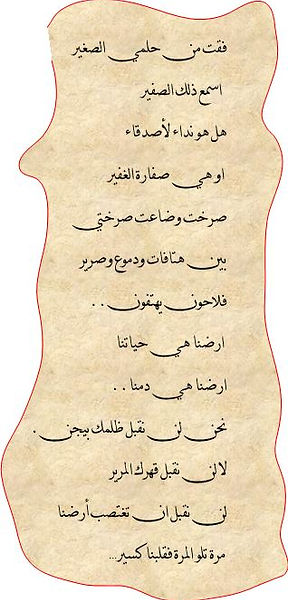 فقت من حلمي الصغير
اسمع ذلك الصفير
هل هو نداء لأصدقاء
او هي صفارة الغفير
صرخت وضاعت صرختي
بين هتافات ودموع وصرير
فلاحون يهتفون . .
ارضنا هي حياتنا
ارضنا هي دمنا . .
نحن لن نقبل ظلمك بيجن .
لا لن نقبل قهرك المرير
لن نقبل ان تغتصب أرضنا
مرة تلو المرة فقلبنا كسير...